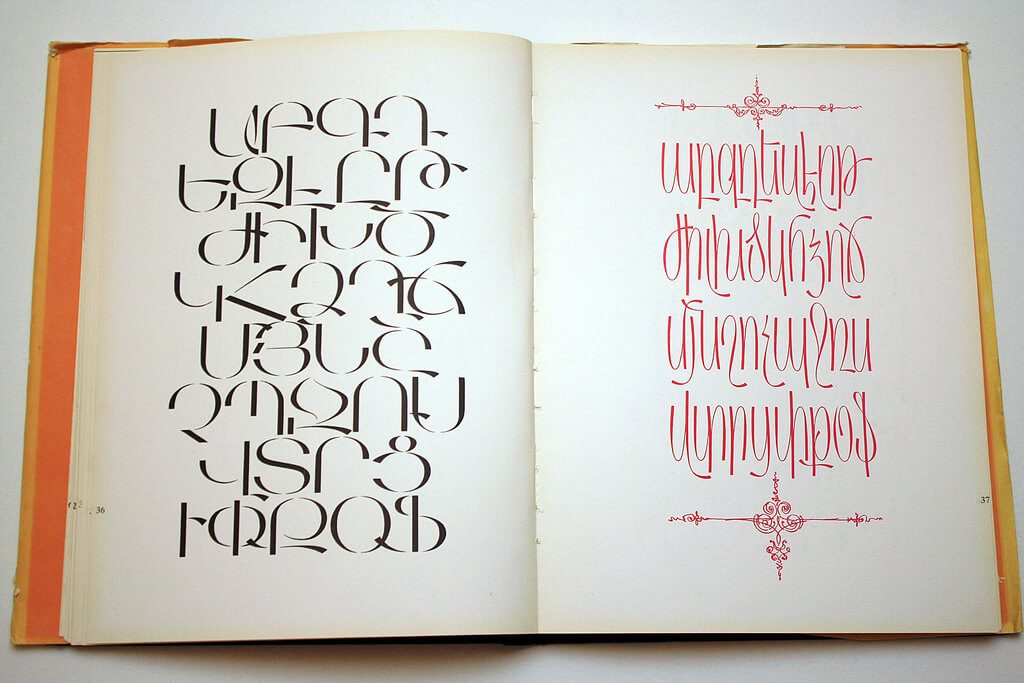 ԱԲԳԴ
ԵԶԷԸԹ
ԺԻԼԽԾ
ԿՀՁՂՃ
ՄՅՆՇ
ՉՊՋՌՍ
ՎՏՐՑ
ՒՓՔՕՖ
36
աբգդեզէըթ
ժիլխծկհձղճ
մյնշոչպջռս
վտրցւփքօֆ
37